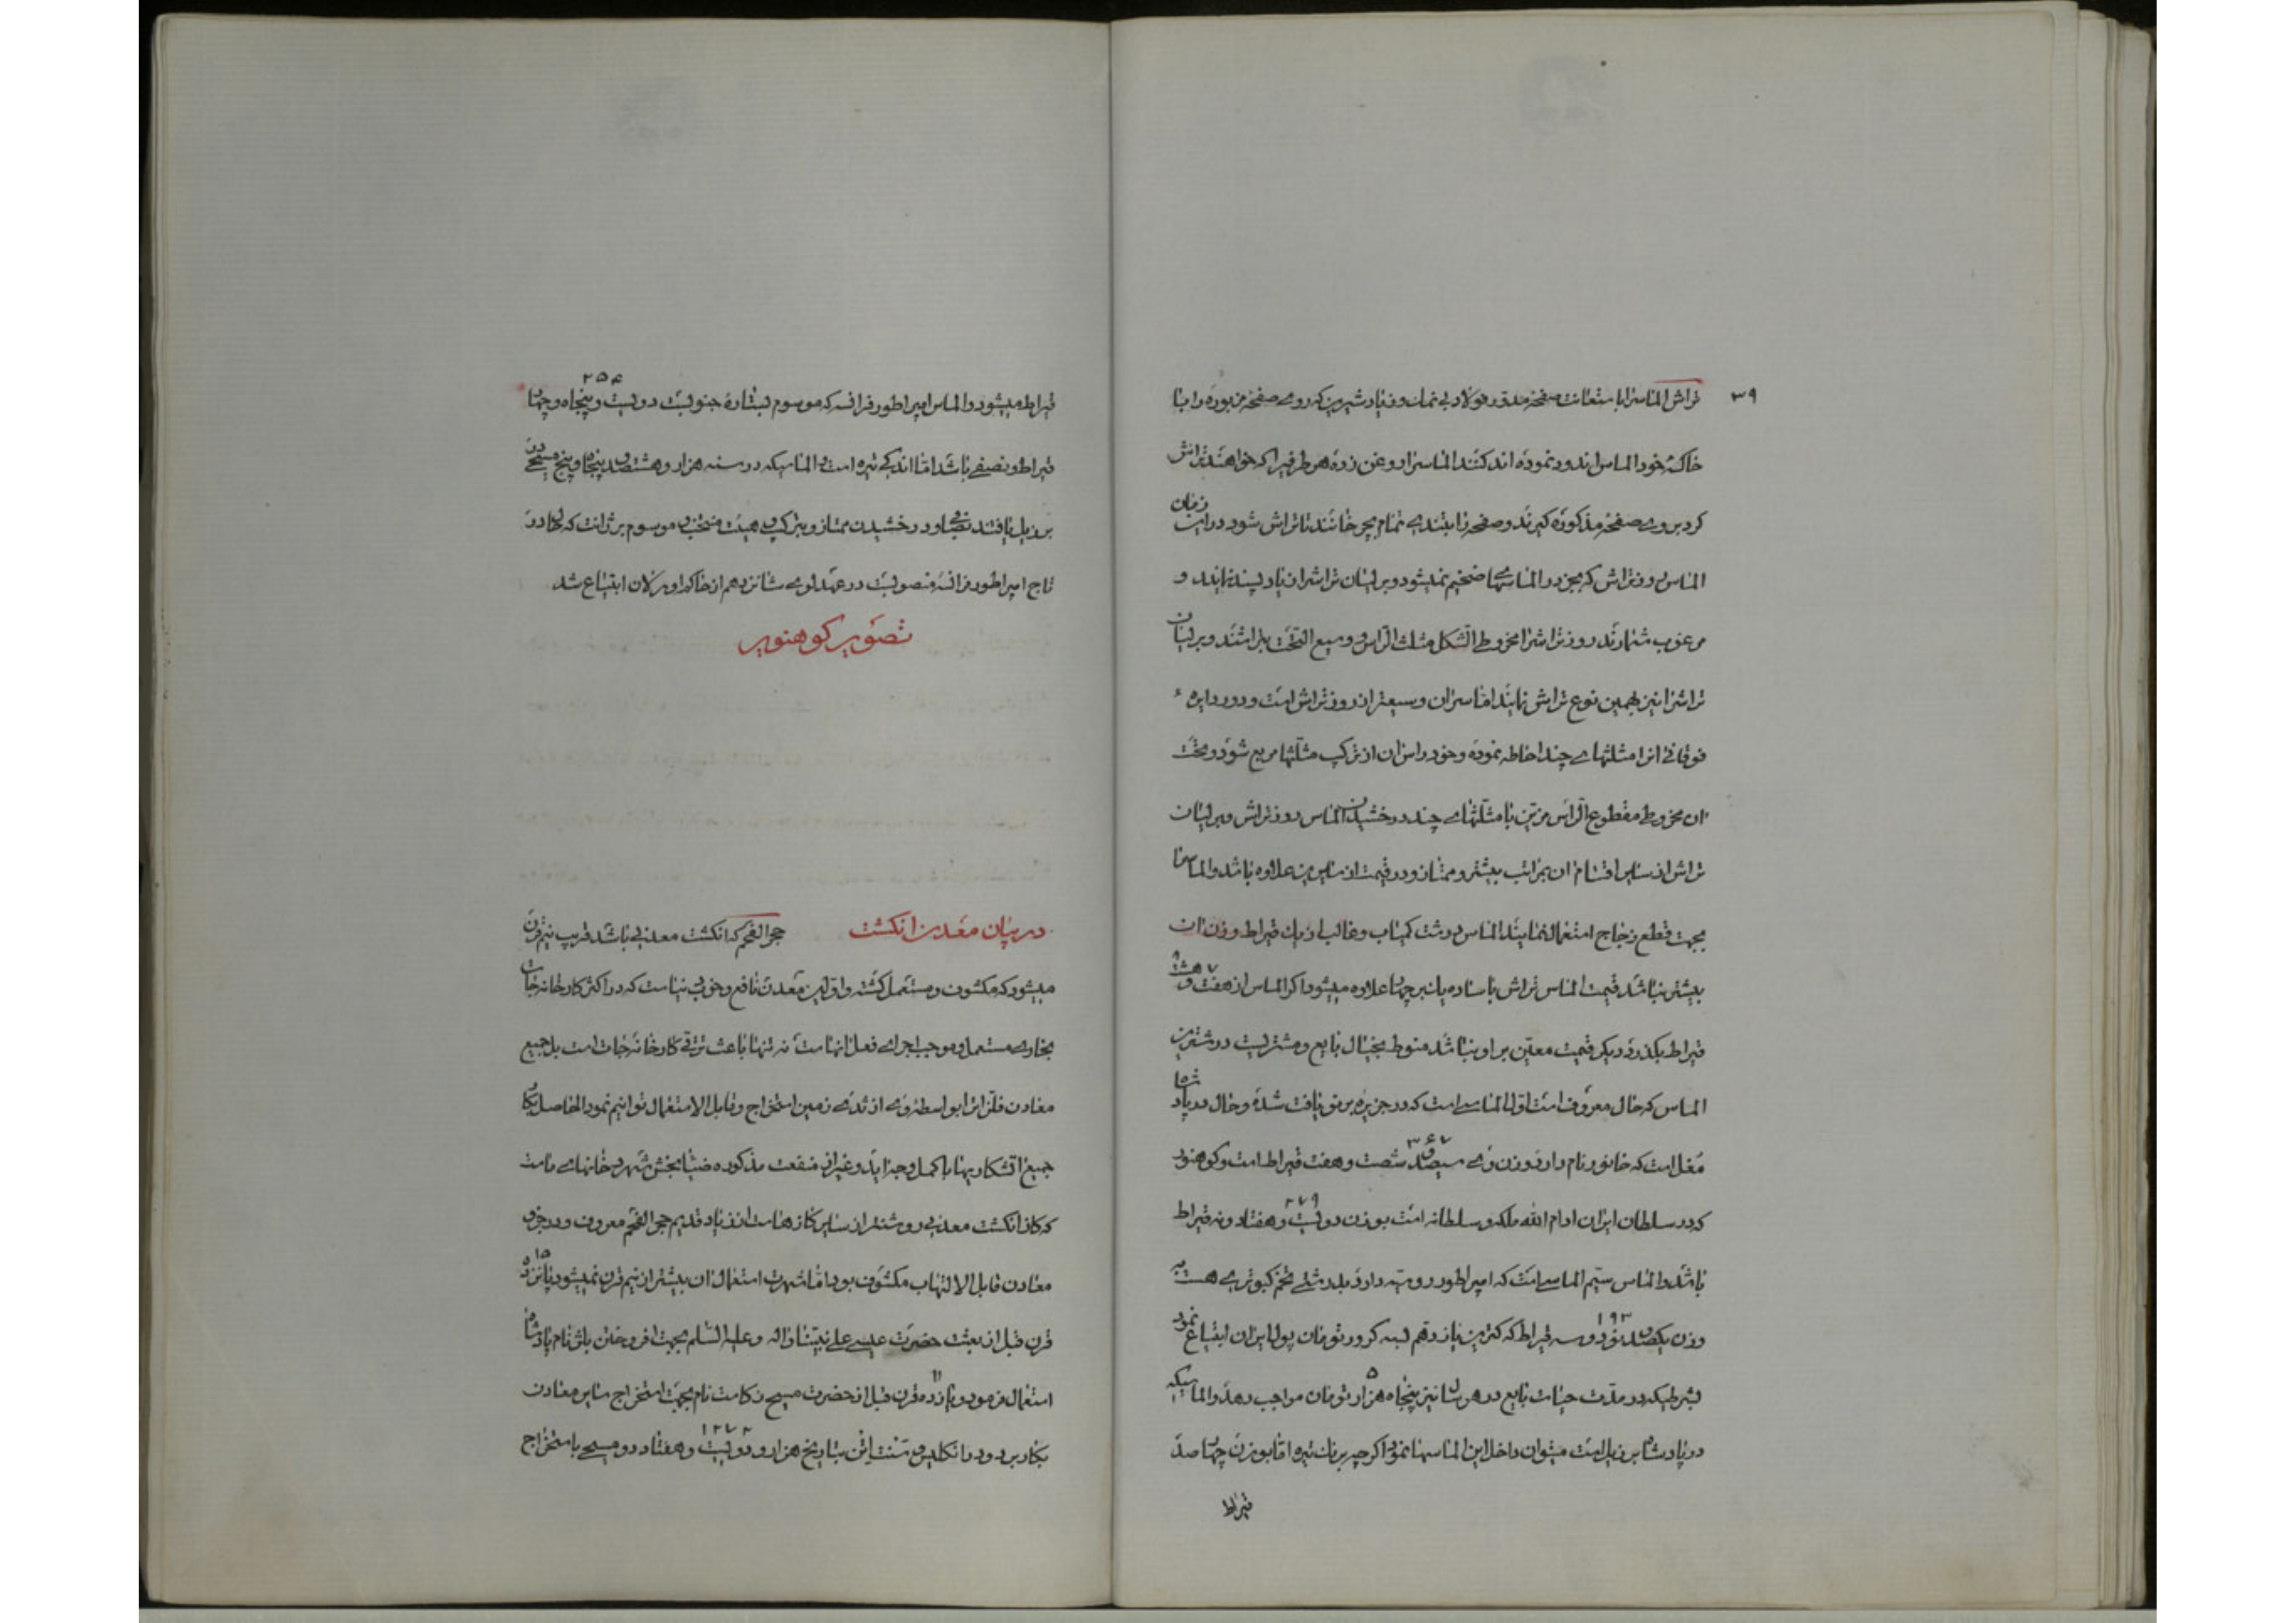 ۳۹
تراش الماسرا باستعانت صفحهٔ مدور فولاد بی نمک و زیاد شیرین که روی صفحهٔ مزبوره را با
خاکهٔ خود الماس اندود نموده اند کنند الماسرا روغن زده هر طرفیرا که خواهند تراش
کرد بروی صفحهٔ مذکوره گیرند و صفحه را بتندی تمام بچرخانند تا تراش شود در این زمان
الماس روز تراش که بجز در الماسهای ضخیم نمیشود و برلیان تراشرا زیاد پسندیدهاند و
مرغوب شمارند روز تراشرا مخروطی الشکل مثلث الراس و وسیع التحت بتراشند و برلیان
تراشرا نیز بهمین نوع تراش نمایند اما سر آن وسیعتر از روز تراش است و دور دایرهٔ
فوقانی انرا مثلثهای چند احاطه نموده و خود راس آن از ترکیب مثلثها مربع شود و تحت
ان مخروط مقطوع الراس مزین با مثلثهای چند درخشیدن الماس روز تراش و برلیان
تراش از سایر اقسام ان بمراتب بیشتر و ممتاز و در قیمت از سایرین علاوه باشد و الماسها
بجهت قطع زجاج استعمال نمایند الماس درشت کمیاب و غالبا از یک قیراط وزن ان
بیشتر نباشد قیمت الماس تراش با ساده یا نبر چهار علاوه میشود اگر الماس از هفت و هشت
قیراط بگذرد دیگر قیمت معین بر او نباشد منوط بخیال بایع و مشتریست درشترین
الماس که حال معروف است اول الماسی است که در جزیره برنو یافت شده و حال در پادشاه
مغل است که خانور نام دارد وزن وی سیصد و شصت و هفت ۳۶۷ قیراط است و کوه نور
که در سلطان ایران ادام الله ملکه و سلطانه است بوزن دویست و هفتاد و نه ۲۷۹ قیراط
باشد و الماس سیم الماسی است که امپراطور روسیه دارد بدرشتی تخم کبوتری هست به
وزن یکصد و نود و سه ۱۹۳ قیراط که کترین یازدهم بسه کرور تومان پول ایران ابتیاع نمود
بشرطیکه در مدت حیات بایع در هر سال نیز پنجاه هزار تومان مواجب دهد و الماسیکه
در پادشاه برزیل است میتوان داخل این الماسها نمود اگر چه برنک تیره اما بوزن چهار صد
قیراط
قیراط میشود و الماس امپراطور فرانسه که موسوم بستارهٔ جنوبست دویست و پنجاه و چهار ۲۵۴
قیراط و نصفی باشد اما اندکی تیره است و الماسیکه در سنه هزار و هشتصد و پنجاه و پنج مسیحی در
برزیل یافتند بصفا و درخشیدن ممتاز و بترکیب و هیئت منتخب و موسوم برژانت که حال در
تاج امپراطور فرانسه منصوبست در عهد لوی شانزدهم از خاک اورلان ابتیاع شد
تصویر کوه نور
در بیان معدن انکشت حجر الفحم که انکشت معدنی باشد قریب نیم قرن
میشود که مکشوف و مستعمل کشته و اولین معدن نافع و خوب دنیاست که در اکثر کارخانه جات
بخاری مستعمل و موجب اجرای فعل انهاست نه تنها باعث ترقی کارخانه جات است بل جمیع
معادن فلزاترا بواسطه وی از ته زمین استخراج و قابل الاستعمال توانیم نمود الحاصل بکار
جمیع اتشکاریها باکمل وجه اید و غیر از منفعت مذکوره ضیا بخش شهر و خانهای ماست
که کاز انکشت معدنی روشنتر از سایر کازهاست از زیاد قدیم حجر الفحم معروف و در جزو
معادن قابل الالتهاب مکشوف بود اما شهرت استعمال ان بیشتر از نیم قرن نمیشود پانزده ۱۵
قرن قبل از بعثت حضرت عیسی علی نبینا و اله و علیه السلام بجهت افروختن باش نام پادشاه
استعمال فرمود و یازده ۱۱ قرن قبل از حضرت مسیح زکامت نام بجهت استخراج سایر معادن
بکار برد و در انکلیس سنت این بتاریخ هزار و دویست ۱۲۷۲ و هفتاد دو مسیحی باستخراج